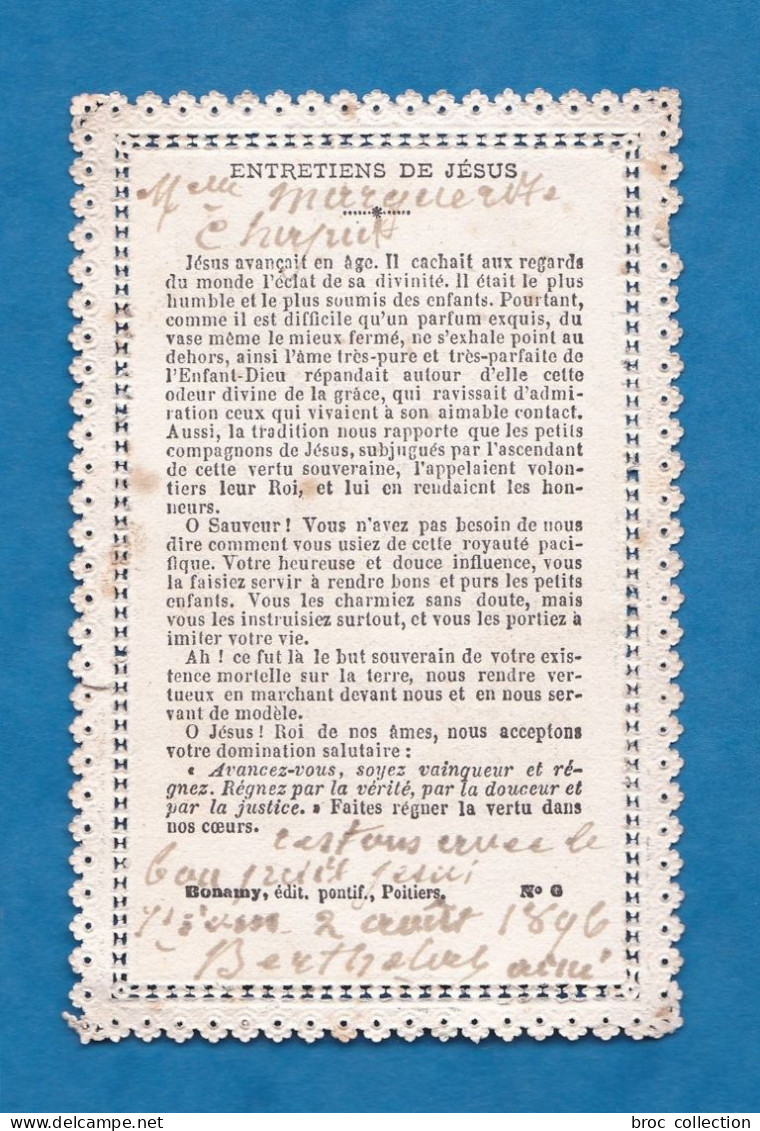 ENTRETIENS DE JÉSUS
Melle Marguerite
Chapuit
Jésus avançait en âge. Il cachait aux regards
du monde l'éclat de sa divinité. Il était le plus
humble et le plus soumis des enfants. Pourtant,
comme il est difficile qu'un parfum exquis, du
vase même le mieux fermé, ne s'exhale point au
dehors, ainsi l'âme très-pure et très-parfaite de
l'Enfant-Dieu répandait autour d'elle cette
odeur divine de la grâce, qui ravissait d'admi-
ration ceux qui vivaient à son aimable contact.
Aussi, la tradition nous rapporte que les petits
compagnons de Jésus, subjugués par l'ascendant
de cette vertu souveraine, l'appelaient volon-
tiers leur Roi, et lui en rendaient les hon-
neurs.
O Sauveur ! Vous n'avez pas besoin de nous
dire comment vous usiez de cette royauté paci-
fique. Votre heureuse et douce influence, vous
la faisiez servir à rendre bons et purs les petits
enfants. Vous les charmiez sans doute, mais
vous les instruisiez surtout, et vous les portiez à
imiter votre vie.
Ah ! ce fut là le but souverain de votre exis-
tence mortelle sur la terre, nous rendre ver-
tueux en marchant devant nous et en nous ser-
vant de modèle.
O Jésus ! Roi de nos âmes, nous acceptons
votre domination salutaire :
« Avancez-vous, soyez vainqueur et ré-
gnez. Régnez par la vérité, par la douceur et
par la justice. » Faites régner la vertu dans
nos cœurs.
le
bon petit jesus
Bonamy, édit. pontif., Poitiers. No 6
2 août 1896